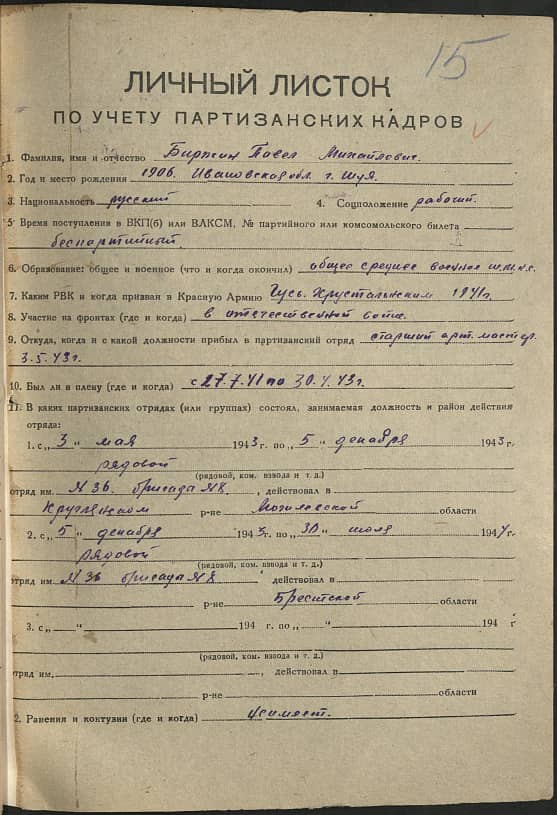 15
ЛИЧНЫЙ ЛИСТОК
ПО УЧЕТУ ПАРТИЗАНСКИХ КАДРОВ
1. Фамилия, имя и отчество Павел Михайлович.
2. Год и место рождения 1906. Ивановская обл. г. Шуя.
3. Национальность русский 4. Соцположение рабочий.
5 Время поступления в ВКП(б) или ВЛКСМ, № партийного или комсомольского билета
беспартийный.
6. Образование: общее и военное (что и когда окончил) общее среднее военное ш.м.к.с.
7. Каким РВК и когда призван в Красную Армию Гусь-Хрустальским 1941г.
8. Участие на фронтах (где и когда) в отечественной войне.
9. Откуда, когда и с какой должности прибыл в партизанский отряд старший арт. мастер.
3.5.43г.
10. Был ли в плену (где и когда) с 27.7.41 по 30.4.43г.
11. В каких партизанских отрядах (или группах) состоял, занимаемая должность и район действия
отряда:
1. с „ 3 " мая 1943г. по „ 5 " декабря 1943г.
рядовой
(рядовой, ком. взвода и т. д.)
отряд им. N 36. бригада N 8. , действовал в
Круглянском р-не Могилевской области
2. с „ 5 " декабря 1943г. по „ 30 " июля 1944г.
рядовой
(рядовой, ком. взвода и т. д.)
отряд им. N 36 бригада N 8 , действовал в
р-не Брестской области
3. с „ " 194 г. по „ " 194 г
(рядовой, ком. взвода и т. д.)
отряд им. , действовал в
р-не области
2. Ранения и контузии (где и когда) не имеет.